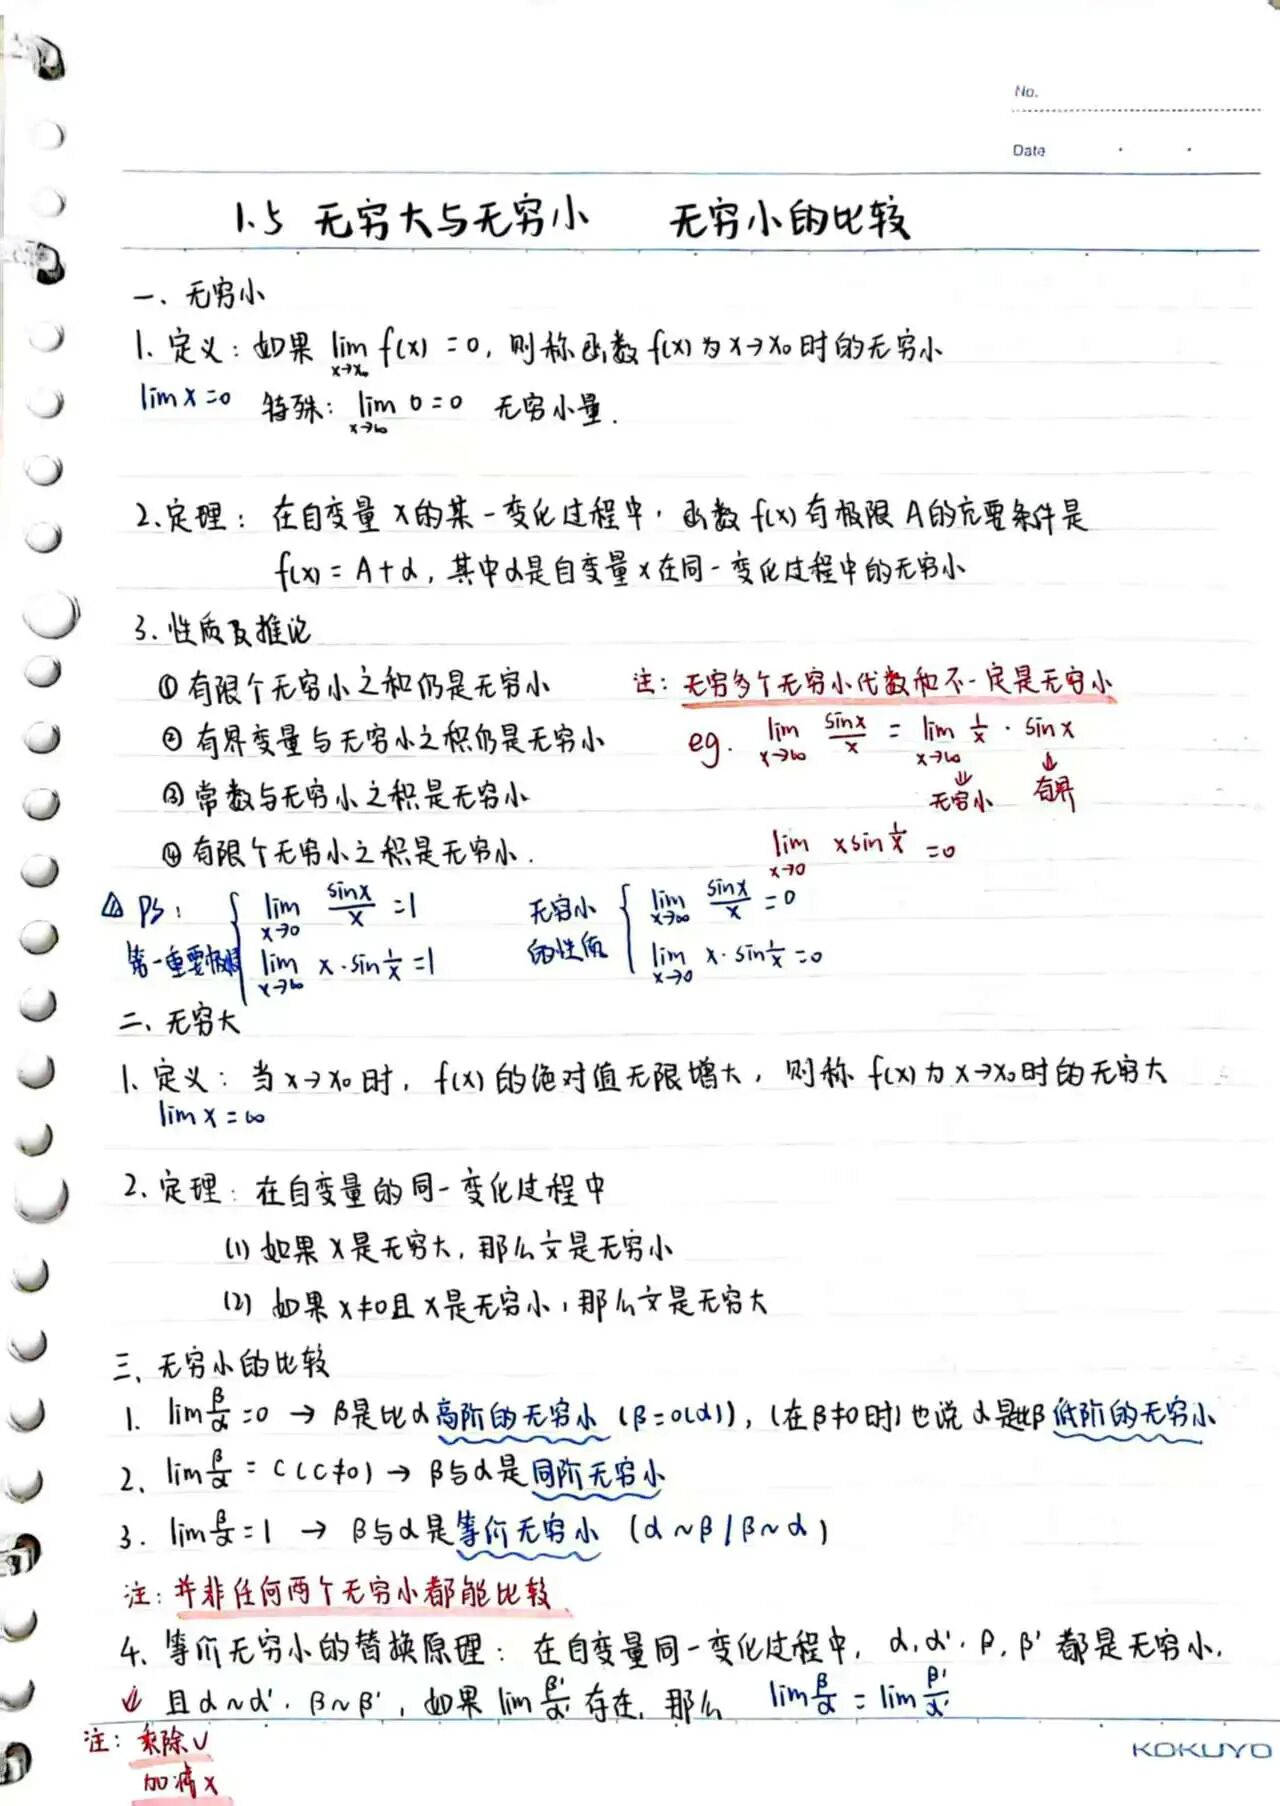 No.
Date
1.5 无穷大与无穷小 无穷小的比较
一、无穷小
1. 定义：如果 lim x→x₀ f(x) = 0, 则称函数 f(x) 为 x→x₀ 时的无穷小
lim x = 0 特殊: lim x→∞ 0 = 0 无穷小量.
2.定理： 在自变量 x 的某一变化过程中，函数 f(x) 有极限 A 的充要条件是
f(x) = A + α, 其中 α 是自变量 x 在同一变化过程中的无穷小
3. 性质及推论
① 有限个无穷小之和仍是无穷小 注: 无穷多个无穷小代数和不一定是无穷小
② 有界变量与无穷小之积仍是无穷小 eg. lim x→∞ sinx/x = lim x→∞ 1/x · sinx
③ 常数与无穷小之积是无穷小 无穷小 有界
④ 有限个无穷小之积是无穷小. lim x→0 x sin 1/x = 0
△ PS: lim x→0 sinx/x = 1 无穷小 lim x→∞ sinx/x = 0
第一重要极限 lim x→∞ x · sin 1/x = 1 的性质 lim x→0 x · sin 1/x = 0
二、无穷大
1. 定义：当 x→x₀ 时，f(x) 的绝对值无限增大，则称 f(x) 为 x→x₀ 时的无穷大
lim x = ∞
2. 定理：在自变量的同一变化过程中
(1) 如果 X 是无穷大, 那么 1/x 是无穷小
(2) 如果 x≠0 且 x 是无穷小, 那么 1/x 是无穷大
三、无穷小的比较
1. lim β/α = 0 → β 是比 α 高阶的无穷小 (β = o(α)), (在 β≠0 时) 也说 α 是比 β 低阶的无穷小
2. lim β/α = C (C≠0) → β 与 α 是同阶无穷小
3. lim β/α = 1 → β 与 α 是等价无穷小 (α ~ β / β ~ α)
注: 并非任何两个无穷小都能比较
4. 等价无穷小的替换原理： 在自变量同一变化过程中, α, α'. β, β' 都是无穷小,
且 α ~ α'. β ~ β', 如果 lim β'/α' 存在, 那么 lim β/α = lim β'/α'
注: 乘除 √
加减 ×
KOKUYO